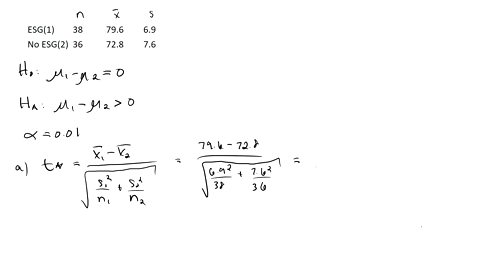 n x̄ s
ESG(1) 38 79.6 6.9
No ESG(2) 36 72.8 7.6
H₀: μ₁-μ₂ = 0
Hₐ: μ₁-μ₂ > 0
α = 0.01
a) t* = (x̄₁ - x̄₂) / √(s₁²/n₁ + s₂²/n₂) = (79.6 - 72.8) / √(6.9²/38 + 7.6²/36) =